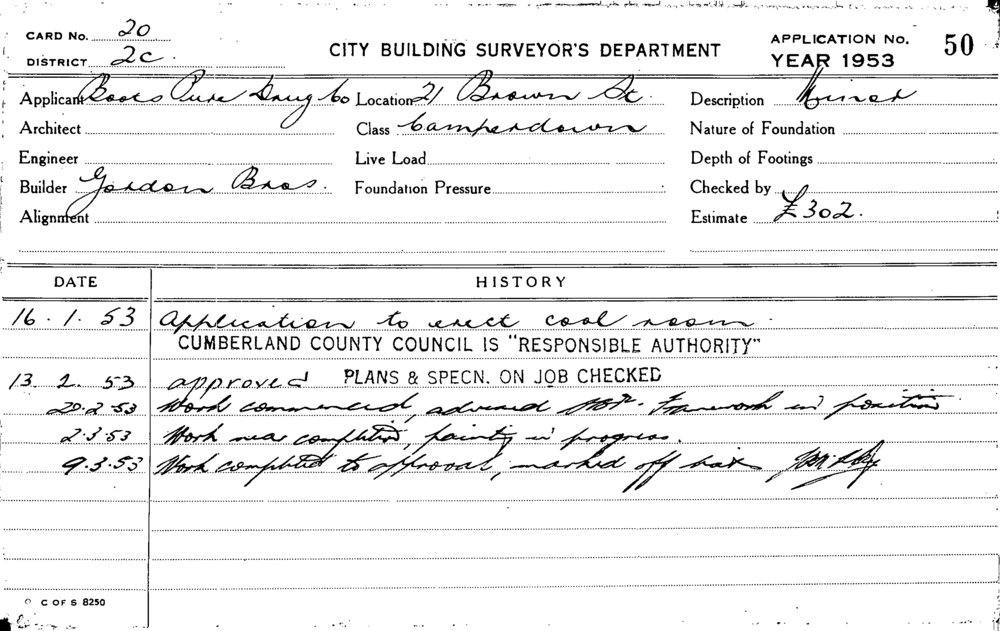 CARD No. 20
DISTRICT 2c.
CITY BUILDING SURVEYOR'S DEPARTMENT
APPLICATION No. 50
YEAR 1953
Applicant Boots Pure Drug Co Location 21 Brown St. Description Minor
Architect Class Camperdown Nature of Foundation
Engineer Live Load Depth of Footings
Builder Gordon Bros. Foundation Pressure Checked by
Alignment Estimate £302.
DATE HISTORY
16.1.53 Application to erect cool room.
CUMBERLAND COUNTY COUNCIL IS "RESPONSIBLE AUTHORITY"
13.2.53 approved PLANS & SPECN. ON JOB CHECKED
20.2.53 Work commenced, advised Framework in position
2.3.53 Work near completion, painting in progress.
9.3.53 Work completed to approval, marked off
C OF S 8250